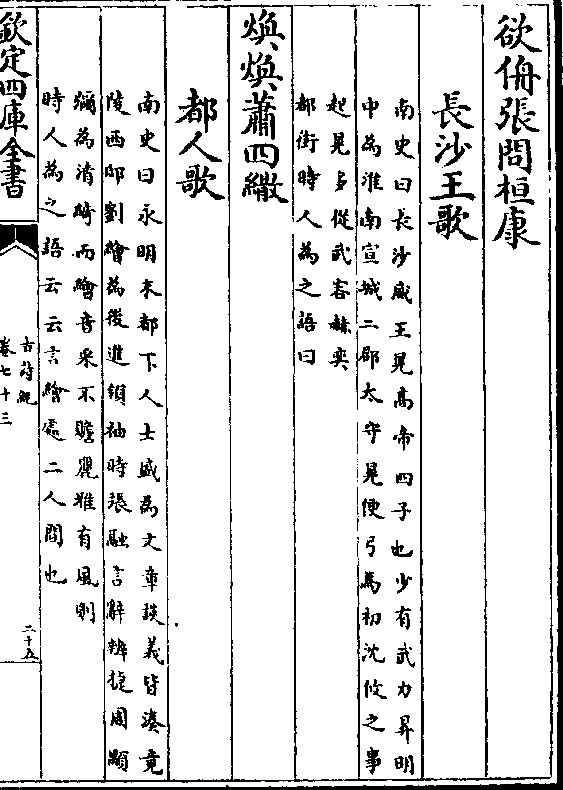 欲侜張問桓康
長沙王歌
南史曰長沙威王晃高帝四子也少有武力昇明
中為淮南宣城二郡太守晃便弓馬初沈攸之事
起晃多從武容赫奕
都街時人為之語曰
煥煥蕭四繖
都人歌
南史曰永明末都下人士盛為文章談義皆湊竟
陵西邸劉繪為後進領袖時張融言辭辨捷周顒
彌為清綺而繪音采不贍麗雅有風則
時人為之語云云言繪處二人間也
欽定四庫全書
古詩紀
卷七十三
二十五